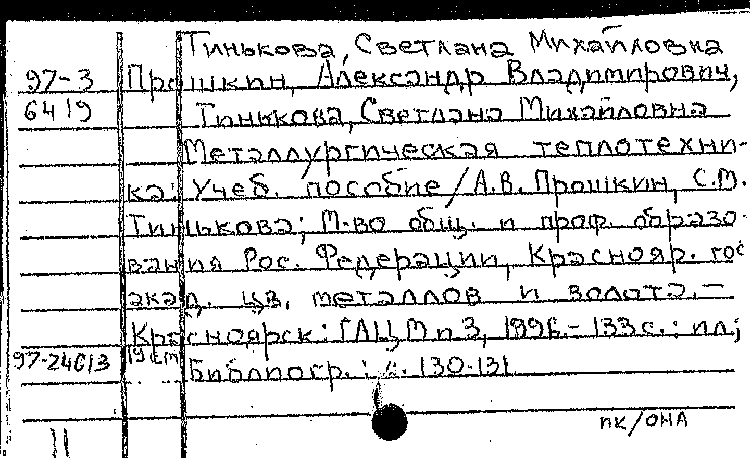 Тинькова, Светлана Михайловна
97-3 Прошкин, Александр Владимирович,
6419 Тинькова, Светлана Михайловна
Металлургическая теплотехни-
ка: Учеб. пособие / А.В. Прошкин, С.М.
Тинькова; М-во общ. и проф. образо-
вания Рос. Федерации, Краснояр. гос
акад. цв. металлов и золота. –
Красноярск: ГАЦМиЗ, 1996. – 133 с.: ил;
97-24013 19 см Библиогр.: с. 130-131
пк/ОНА